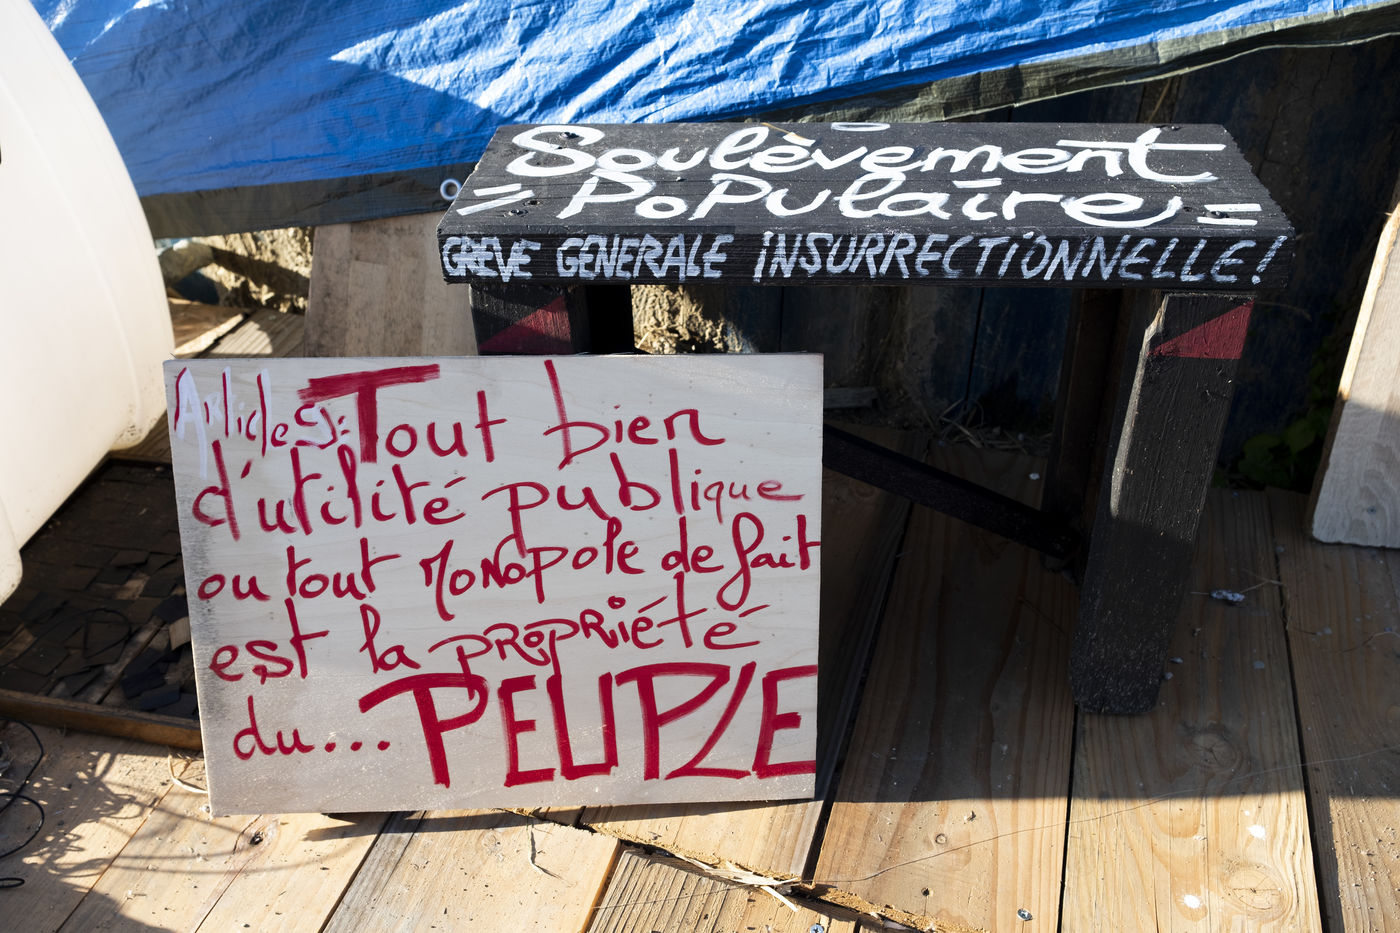 Soulèvement
= Populaire =
GREVE GENERALE INSURRECTIONNELLE!
Article 9: Tout bien
d'utilité publique
ou tout Monopole de fait
est la propriété
du... PEUPLE